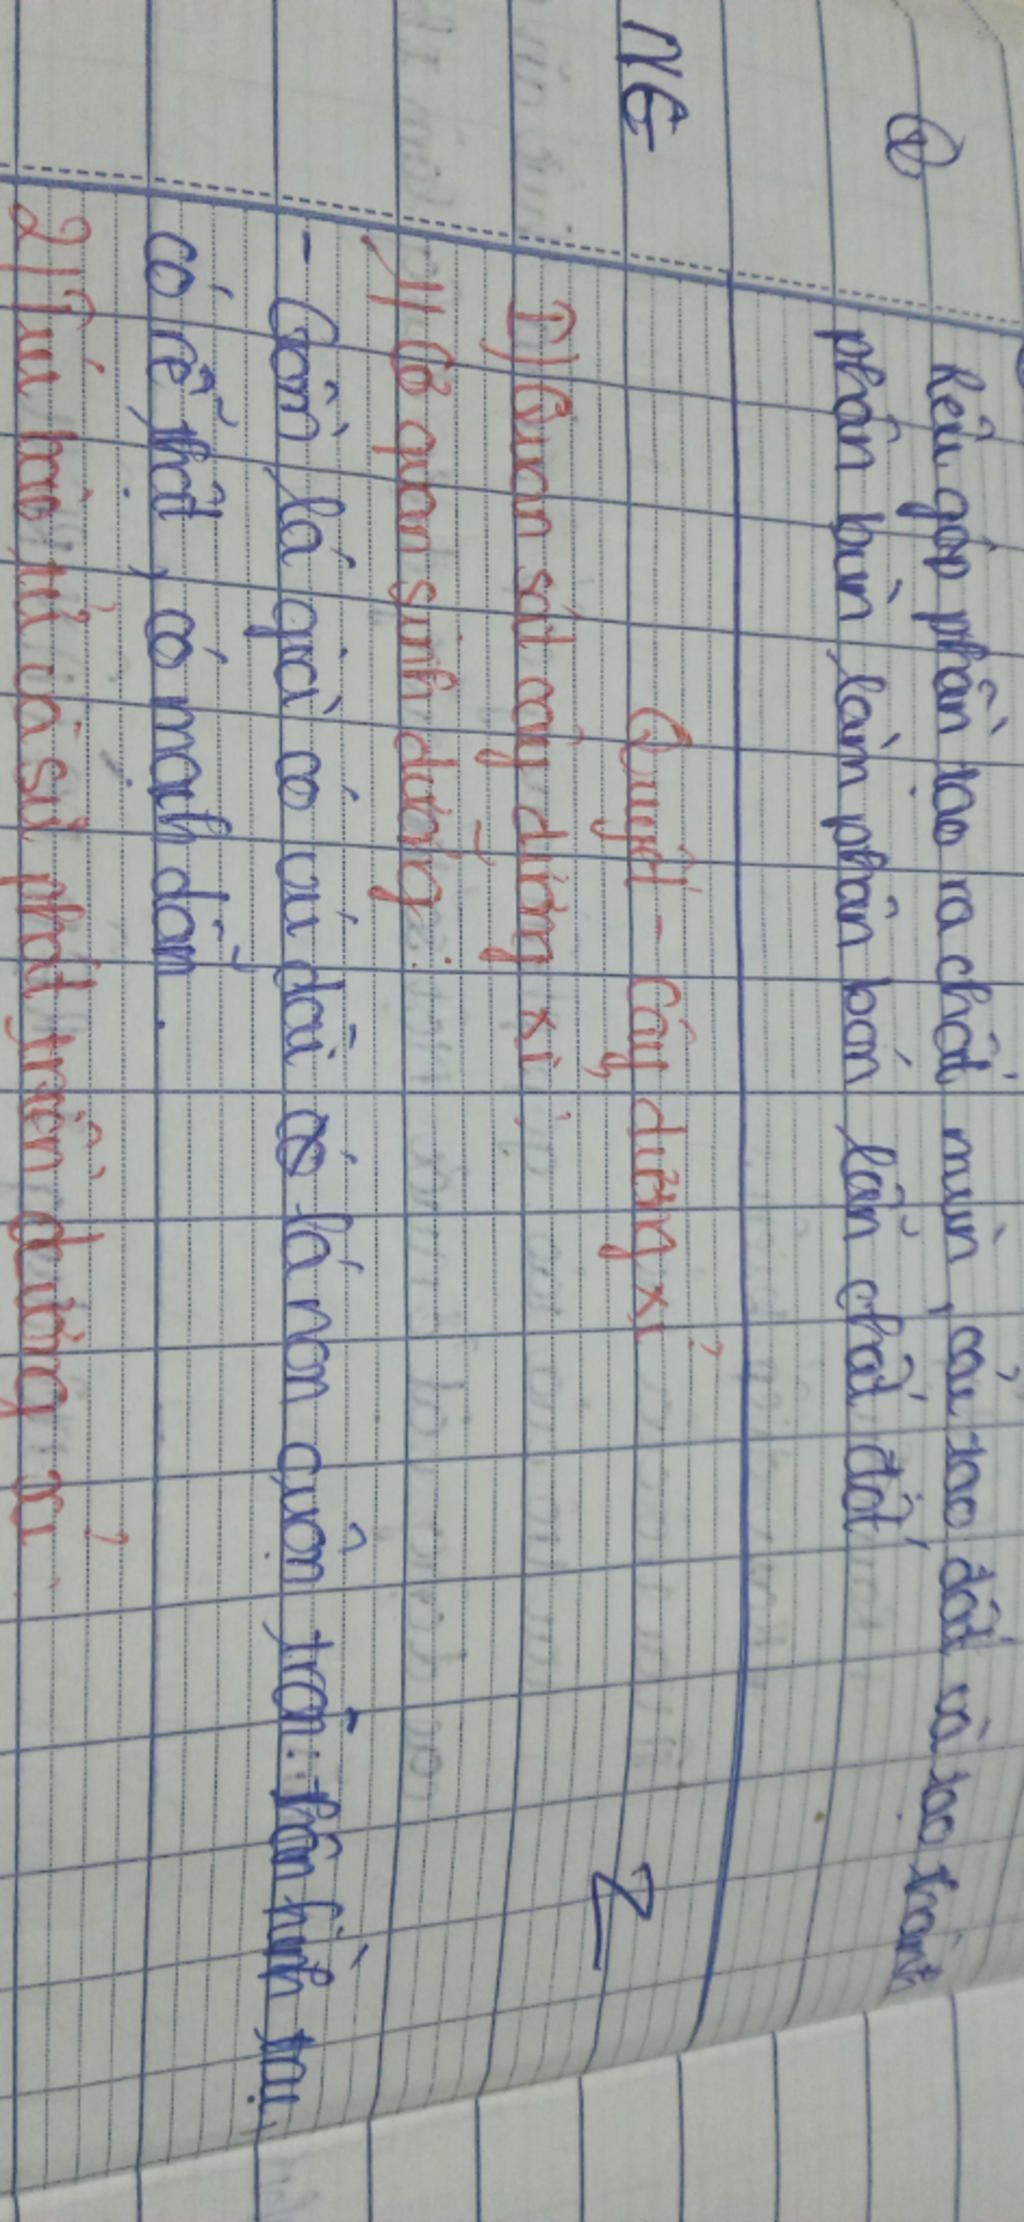 Rêu góp phần tạo ra chất mùn, cải tạo đất và tạo thành
phân bùn làm phân bón lẫn chất đốt
NG
Quyết - Cây dương xỉ
1) Quan sát cây dương xỉ
a) Cơ quan sinh dưỡng.
- Gồm lá già có cú dài có lá non cuộn tròn: thân hình trụ,
có rễ thật, có mạch dẫn.
2) Túi bào tử và sự phát triển dương xỉ